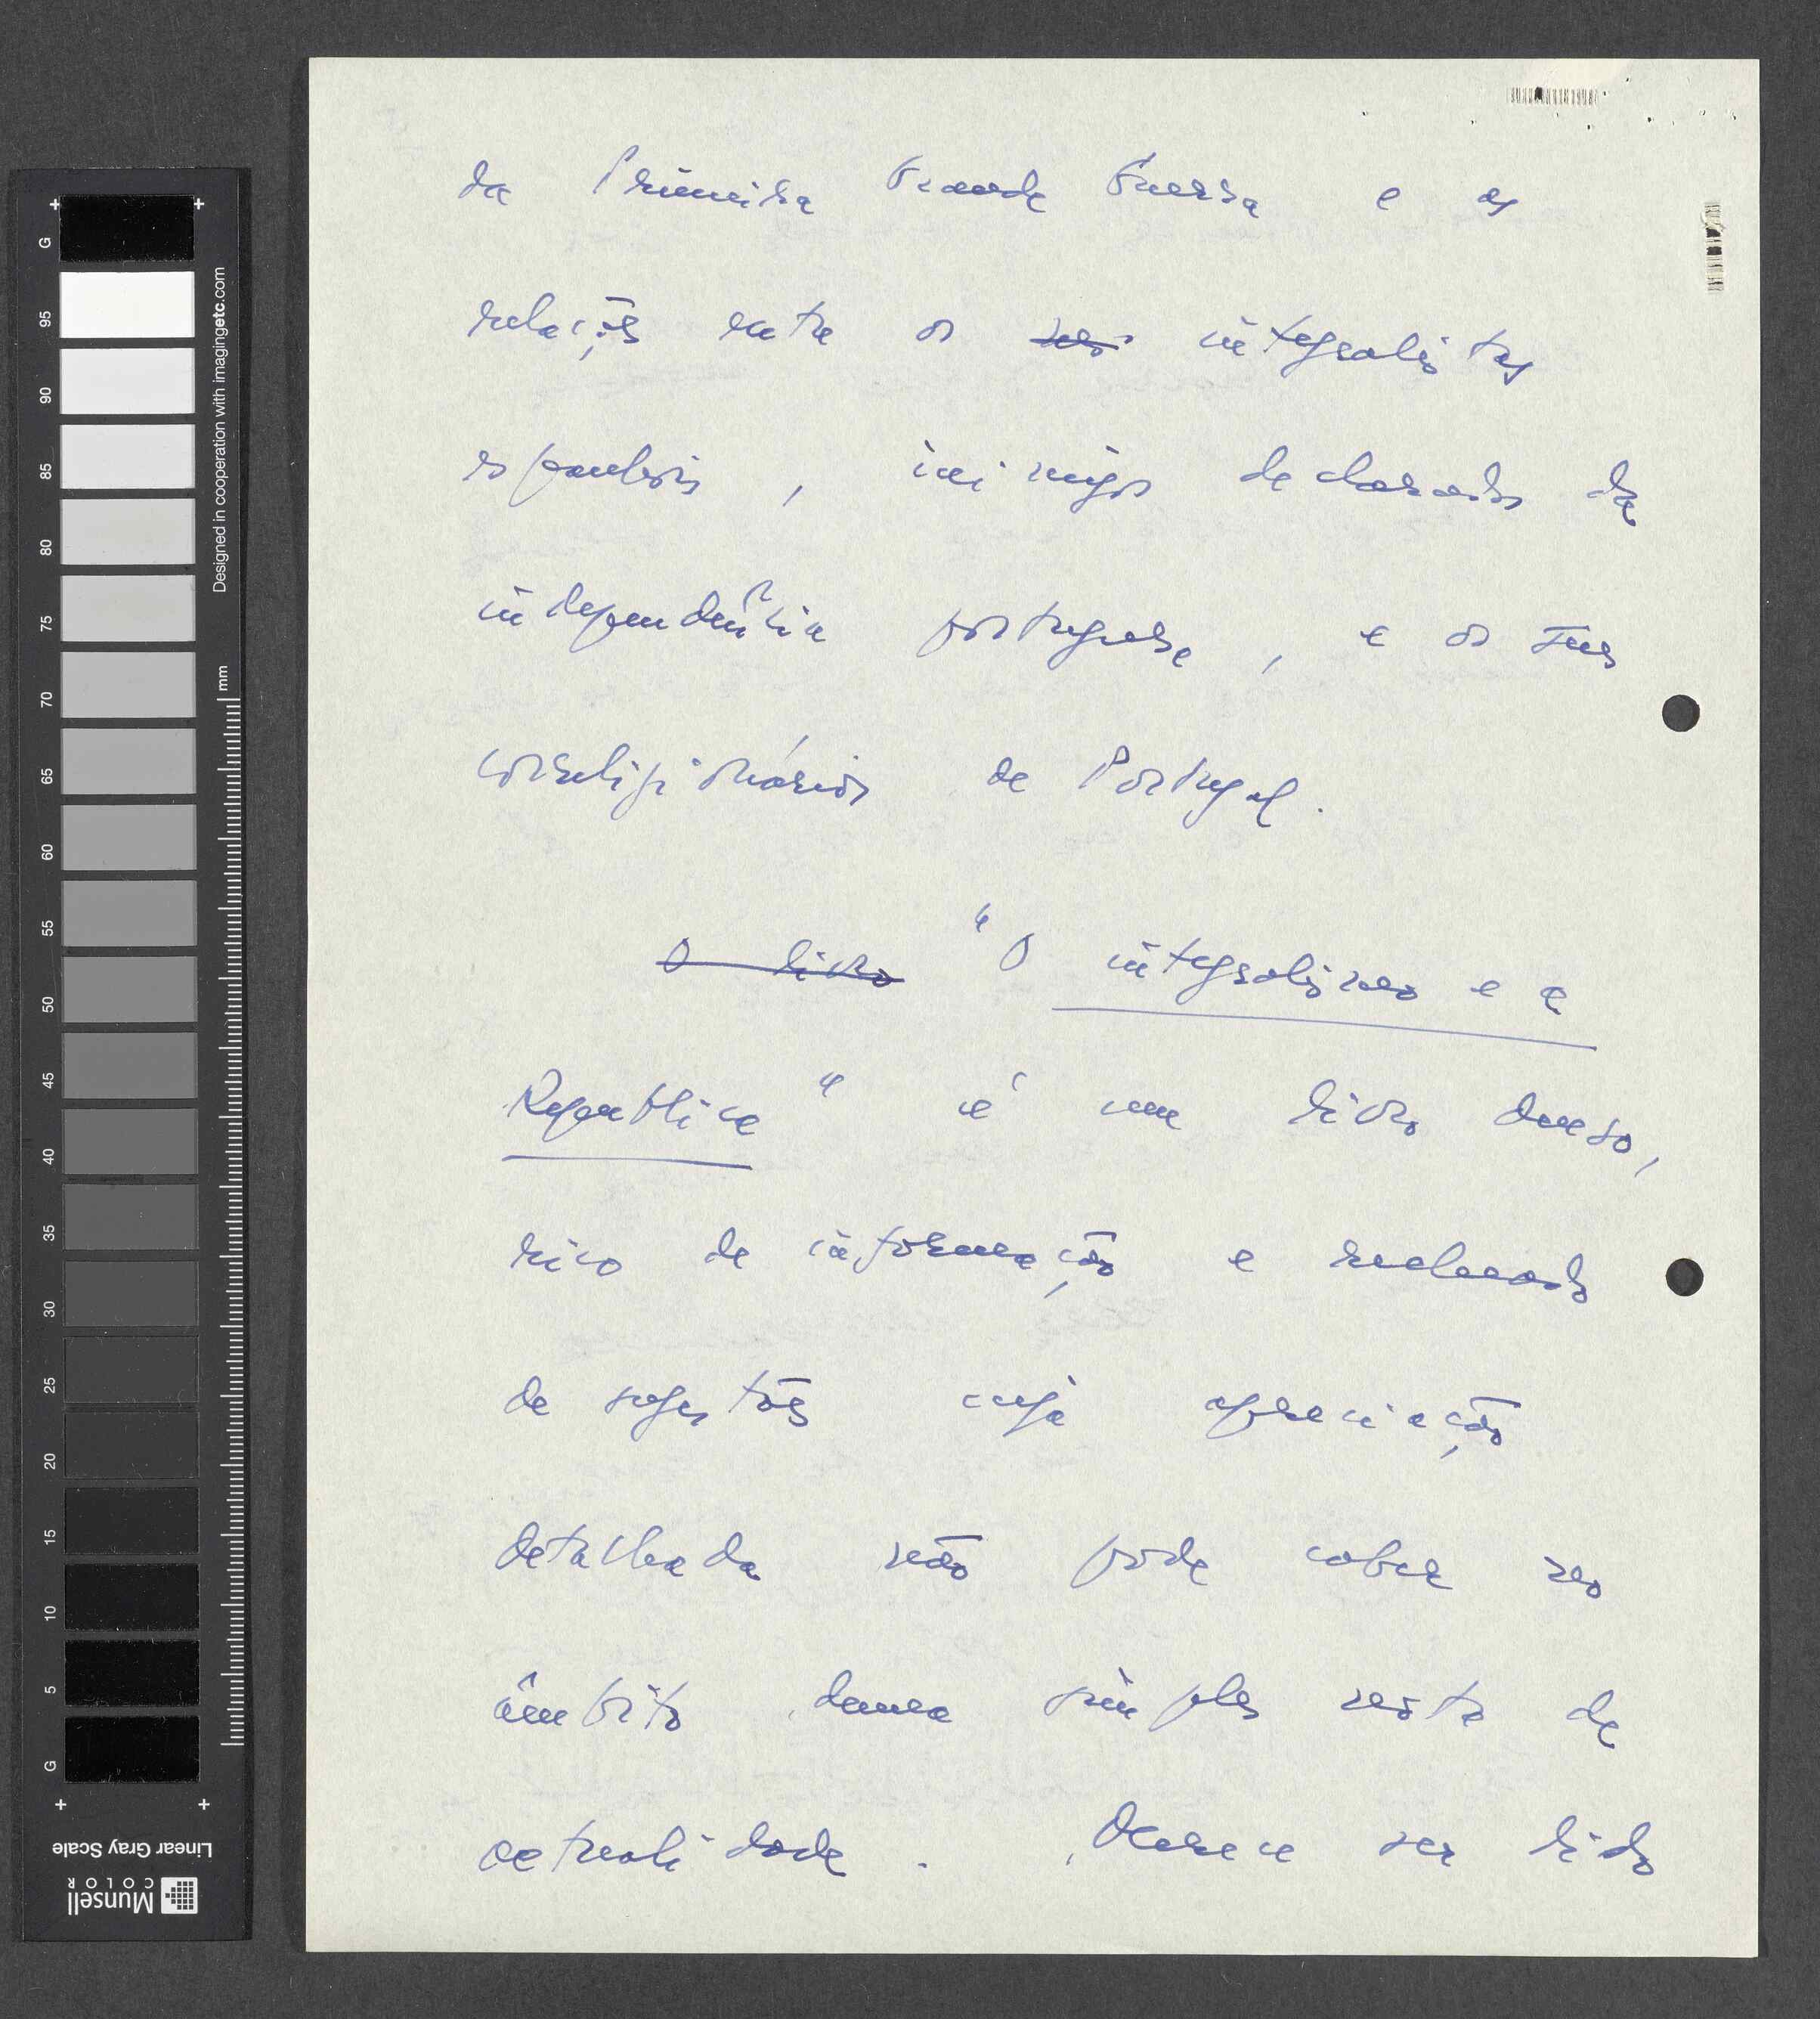 da Primeira Grande Guerra e as
relações entre os integralistas
espanhóis, inimigos declarados da
independência portuguesa, e os seus
correligionários de Portugal.
O livro "O integralismo e a
República" é um livro denso,
rico de informação e recheado
de sugestões cuja apreciação
detalhada não pode caber no
âmbito duma simples nota de
actualidade. Merece ser lido
G
95
90
85
80
75
70
65
60
55
50
45
40
35
30
25
20
15
10
5
G
Designed in cooperation with imagingetc.com
mm
Linear Gray Scale
Munsell
COLOR